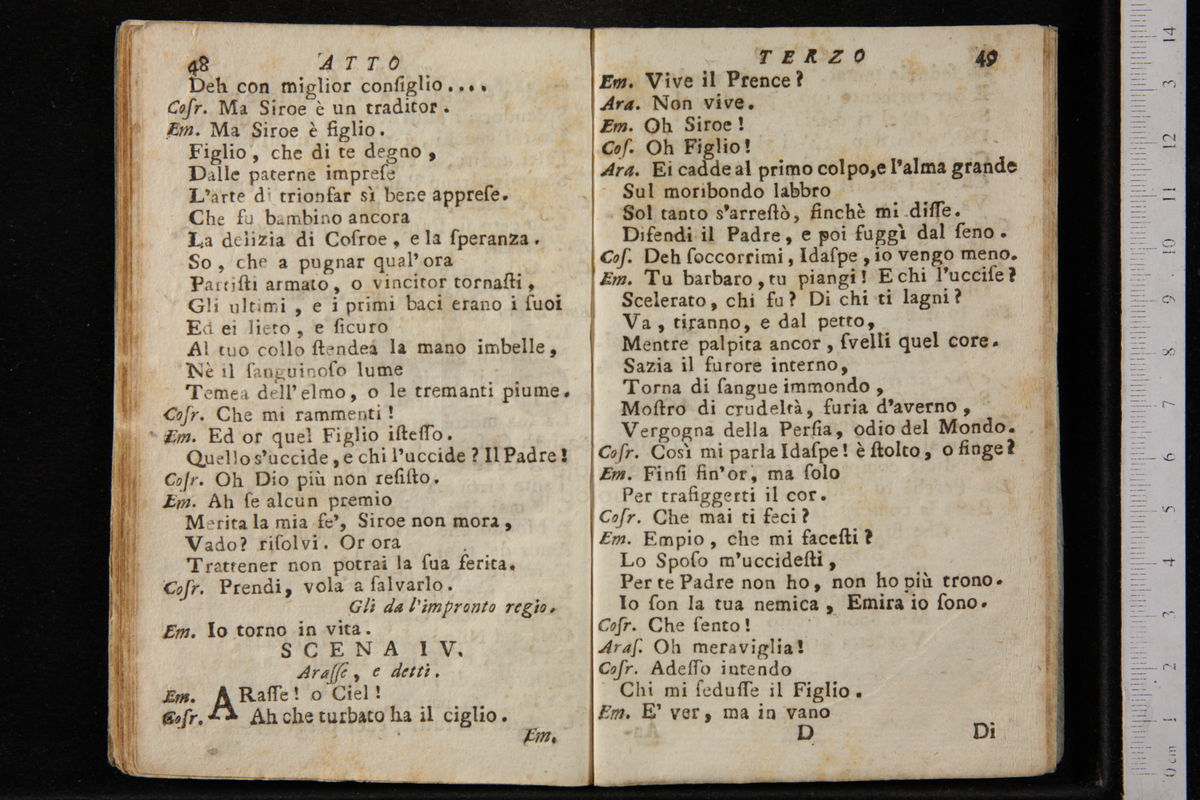 48 ATTO
Deh con miglior conſiglio....
Coſr. Ma Siroe è un traditor.
Em. Ma Siroe è figlio.
Figlio, che di te degno,
Dalle paterne impreſe
L'arte di trionfar sì bene appreſe.
Che fu bambino ancora
La delizia di Coſroe, e la ſperanza.
So, che a pugnar qual'ora
Partiſti armato, o vincitor tornaſti,
Gli ultimi, e i primi baci erano i ſuoi
Ed ei lieto, e ſicuro
Al tuo collo ſtendea la mano imbelle,
Nè il ſanguinoſo lume
Temea dell'elmo, o le tremanti piume.
Coſr. Che mi rammenti!
Em. Ed or quel Figlio iſteſſo.
Quello s'uccide, e chi l'uccide? Il Padre!
Coſr. Oh Dio più non reſiſto.
Em. Ah ſe alcun premio
Merita la mia fe', Siroe non mora,
Vado? riſolvi. Or ora
Trattener non potrai la ſua ferita.
Coſr. Prendi, vola a ſalvarlo.
Gli da l'impronto regio.
Em. Io torno in vita.
SCENA IV.
Araſſe, e detti.
Em. ARaſſe! o Ciel!
Coſr. Ah che turbato ha il ciglio.
Em.
TERZO 49
Em. Vive il Prence?
Ara. Non vive.
Em. Oh Siroe!
Coſ. Oh Figlio!
Ara. Ei cadde al primo colpo, e l'alma grande
Sul moribondo labbro
Sol tanto s'arreſtò, finchè mi diſſe.
Difendi il Padre, e poi fuggì dal ſeno.
Coſ. Deh ſoccorrimi, Idaſpe, io vengo meno.
Em. Tu barbaro, tu piangi! E chi l'ucciſe?
Scelerato, chi fu? Di chi ti lagni?
Va, tiranno, e dal petto,
Mentre palpita ancor, ſvelli quel core.
Sazia il furore interno,
Torna di ſangue immondo,
Moſtro di crudeltà, furia d'averno,
Vergogna della Perſia, odio del Mondo.
Coſr. Così mi parla Idaſpe! è ſtolto, o finge?
Em. Finſi fin'or, ma ſolo
Per trafiggerti il cor.
Coſr. Che mai ti feci?
Em. Empio, che mi faceſti?
Lo Spoſo m'uccideſti,
Per te Padre non ho, non ho più trono.
Io ſon la tua nemica, Emira io ſono.
Coſr. Che ſento!
Araſ. Oh meraviglia!
Coſr. Adeſſo intendo
Chi mi ſeduſſe il Figlio.
Em. E' ver, ma in vano
D Di
0 cm 1 2 3 4 5 6 7 8 9 10 11 12 3 14